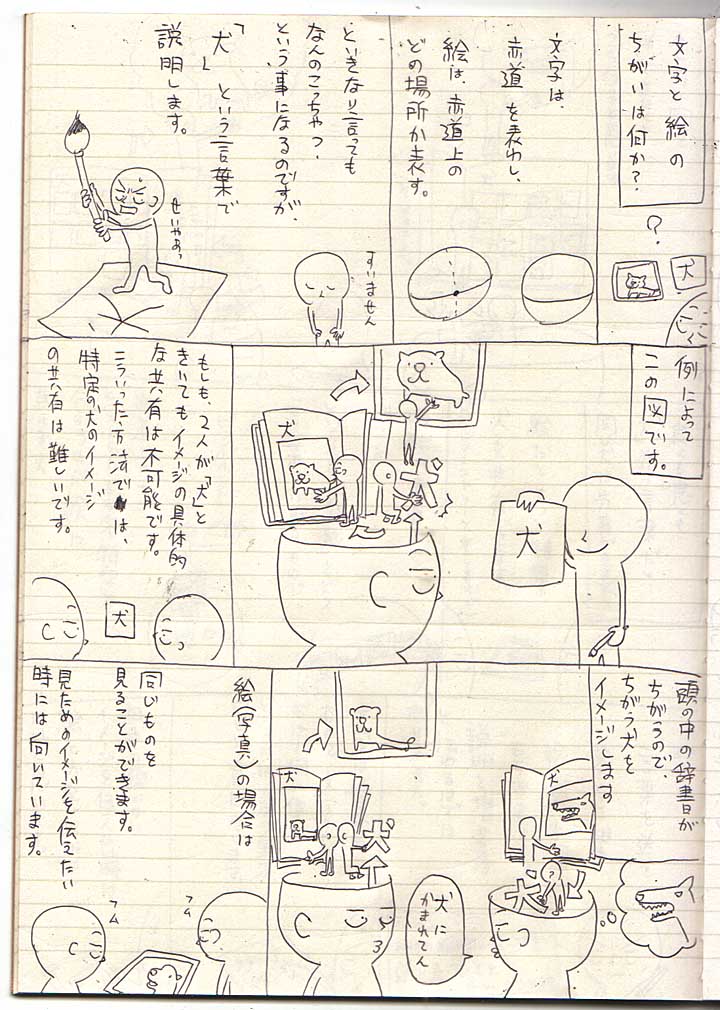 文字と絵の
ちがいは何か?
?
犬
文字は、
赤道を表わし、
絵は、赤道上の
どの場所か表す。
といきなり言っても
なんのこっちゃっ、
という事になるのですが、
「犬」という言葉で
説明します。
すいません
せいやぁっ
例によって
この図です。
犬
犬
犬
もしも、2人が「犬」と
きいてもイメージの具体的
な共有は不可能です。
こういった方法では、
特定の犬のイメージ
の共有は難しいです。
犬
頭の中の辞書が
ちがうので、
ちがう犬を
イメージします
犬
犬
犬に
かまれてん
犬
犬
絵(写真)の場合は
同じものを
見ることができます。
見ためのイメージを伝えたい
時には向いています。
フム
フム